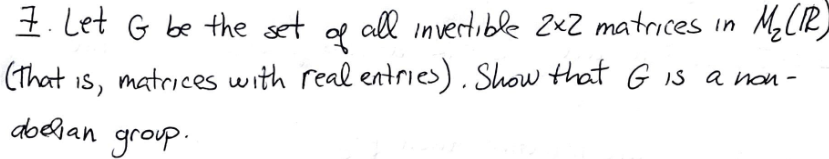 7. Let G be the set of all invertible 2x2 matrices in M₂(ℝ)
(That is, matrices with real entries). Show that G is a non-
abelian group.